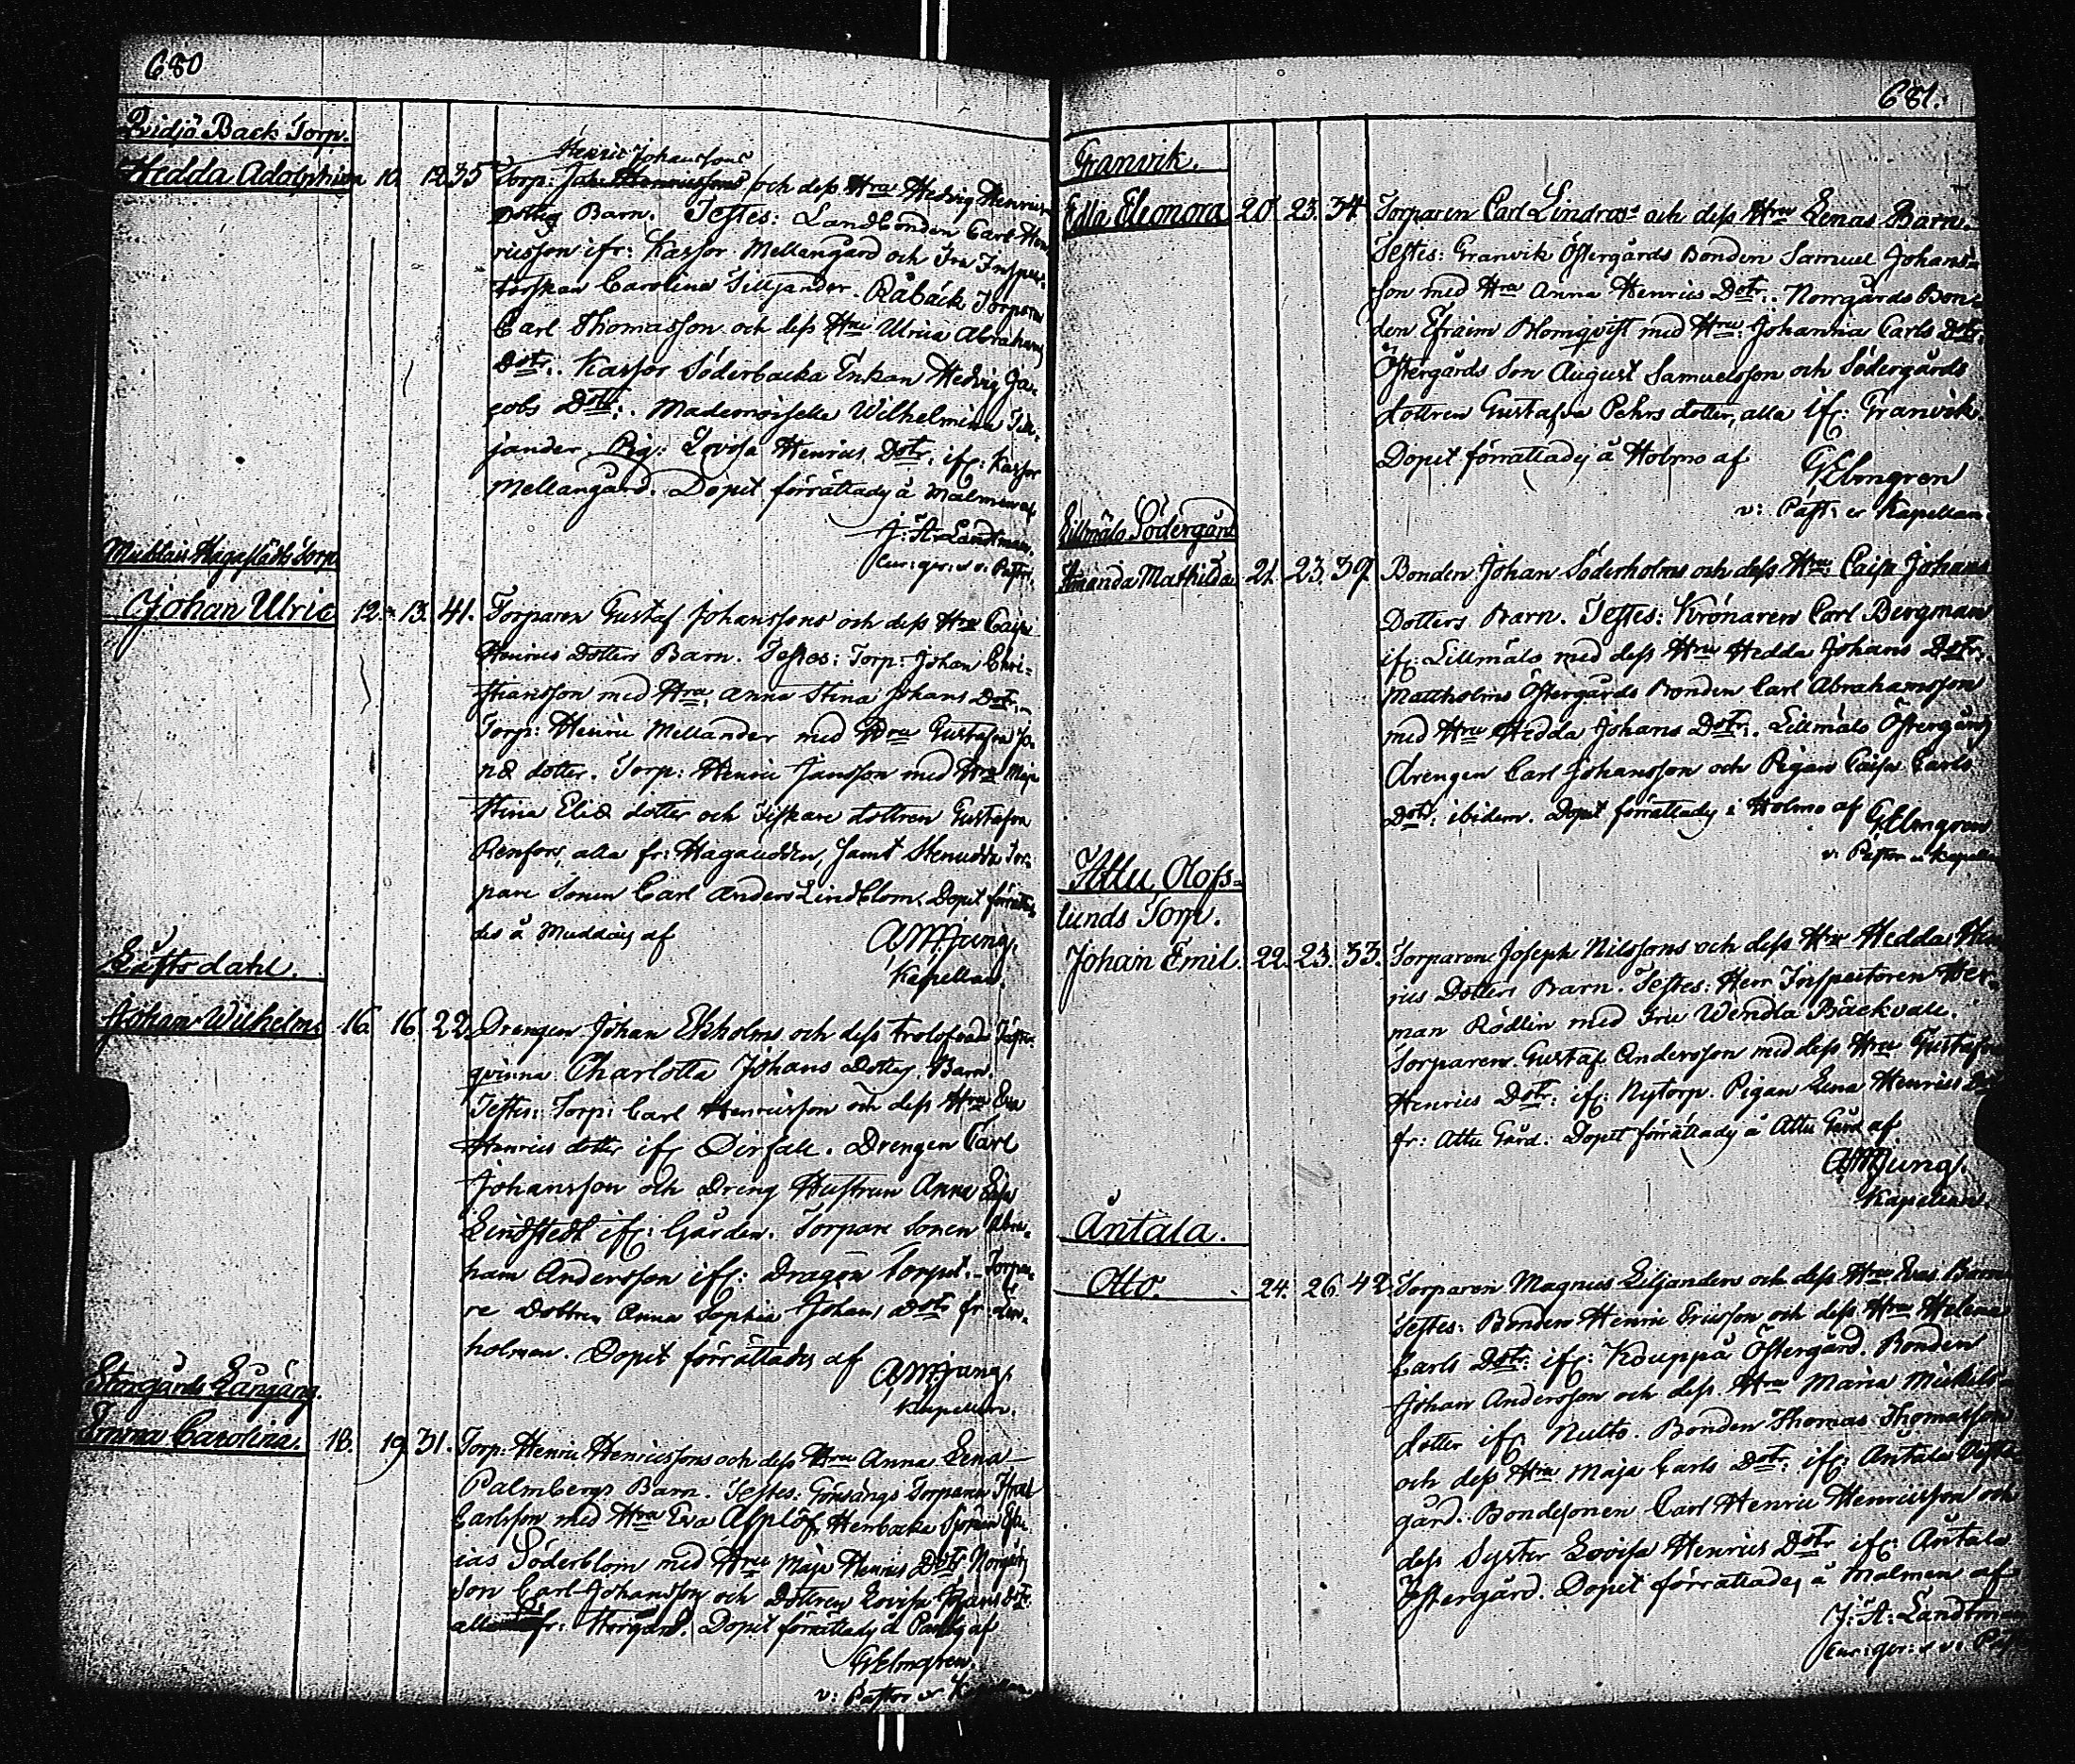 680
Qvidjä Back Torp.
Henric Johanssons
Hedda Adolphina 10. 12. 35 Torp: och dess Hru Hedvig Henrics
Dotters Barn. Testes: Landbonden Carl Hen
ricsson ifr: Kassor Mellangård och Fru Inspec
torskan Carolina Silljander. Råbäck Torparen
Carl Thomasson och dess Hru Ulrica Abrahams
Dotr. Kassor Söderbacka Enkan Hedvig Ja
cobs Dotr:. Mademoiselle Wilhelmina Sill
jander. Pig: Lovisa Henrics Dotr. ifr: Kassor
Mellangård. Dopet förrättades å Malmen af
J: A: Landtman.
Cur: ger: v v: Pastor.
Torp
Johan Ulric 12. 13. 41. Torparen Gustaf Johanssons och dess Hru Caisa
Henrics Dotters Barn. Testes: Torp: Johan Chri-
stiansson med Hru Anna Stina Johans Dotr.
Torp: Henric Mellander med Hru Gustafva Jo
næ dotter. Torp: Henric Jansson med Hru Maja
Stina Eliæ dotter och Fiskare dottren Gustafva
Renfors, alla fr: Hagaudden, samt Stenudda Tor
pare Sonen Carl Anders Lindblom. Dopet förrätta
des å Muddais af
AMJung.
Kapellan.
Läftsdahl.
Johan Wilhelm. 16. 16. 22. Drengen Johan Ekholms och dess trolofvade Fäste-
qvinna Charlotta Johans Dotters Barn.
Testes: Torp: Carl Henricsson och dess Hru Eva
Henrics dotter ifr Dirfall. Drengen Carl
Johansson och Dreng Hustrun Anna Caisa
Lindstedt ifr: Gården. Torpare Sonen Abra
ham Andersson ifr: Dragon Torpet. Torpa
re Dottren Anna Sophia Johans Dotr fr: Len
holmen. Dopet förrättades af
AMJung.
Kapellan.
Storgårds Långäng.
Emma Carolina. 18. 19. 31. Torp: Henric Henricssons och dess Hru Anna Lena
Palmbergs Barn. Testes: Torparen
Carlsson med Hru Eva Asplöf. Herbacka
ias Söderblom med Hru Maja Henrics Dotr Norgårds
Son Carl Johansson och Dottren Lovisa Johans Dotr
alla fr: Storgård. Dopet förrättades å Parsby af
GElmgren.
v: Pastor
681.
Granvik.
Edla Eleonora 20. 23. 34. Torparen Carl Lindroos och dess Hru Lenas Barn.
Testes: Granvik Östergårds Bonden Samuel Johans
son med Hru Anna Henrics Dotr:. Norrgårds Bon-
den Efraim Blomqvist med Hru: Johanna Carls Dotr.
Östergårds Son August Samuelsson och Södergårds
dottren Gustafva Pehrs dotter, alla ifr: Granvik.
Dopet förrättades å Holmo af
GElmgren
v: Past: et Kapellan.
Lillmälo Södergård
Amanda Mathilda 21. 23. 39. Bonden Johan Söderholms och dess Hru: Caisa Johans
Dotters Barn. Testes: Krönaren Carl Bergman
ifr: Lillmälo med dess Hru Hedda Johans Dotr:.
Mattholms Östergårds Bonden Carl Abrahamsson
med Hru Hedda Johans Dotr:. Lillmälo Östergårds
Drengen Carl Johansson och Pigan Caisa Carls
Dotr: ibidem. Dopet förrättades i Holmo af GElmgren
v: Pastor et Kapellan
Attu, Olofs-
lunds Torp.
Johan Emil. 22. 23. 33. Torparen Joseph Nilssons och dess Hru Hedda Hen
rics Dotters Barn. Testes: Herr Inspectoren Her-
man Rödlin med Fru Wendla Bäckvall.
Torparen Gustaf Andersson med dess Hru Gustafva
Henrics Dotr: ifr: Nytorp. Pigan Lena Henrics Dotr
fr: Attu Gård. Dopet förrättades å Attu Gård af
AMJung.
Kapellan.
Antala.
Otto. 24. 26. 42. Torparen Magnus Liljanders och dess Hru Evas Barn
Testes: Bonden Henric Ericsson och dess Hru Helena
Carls Dotr: ifr: Kouppå Östergård. Bonden
Johan Andersson och dess Hru Maria Mickels-
dotter ifr Nulto. Bonden Thomas Thomasson
och dess Hru Maja Carls Dotr: ifr: Antala
gård. Bondesonen Carl Henric Henricsson och
dess Syster Lovisa Henrics Dotr ifr: Antala
Östergård. Dopet förrättades å Malmen af
J: A: Landtman
Cur: ger: v v: Past